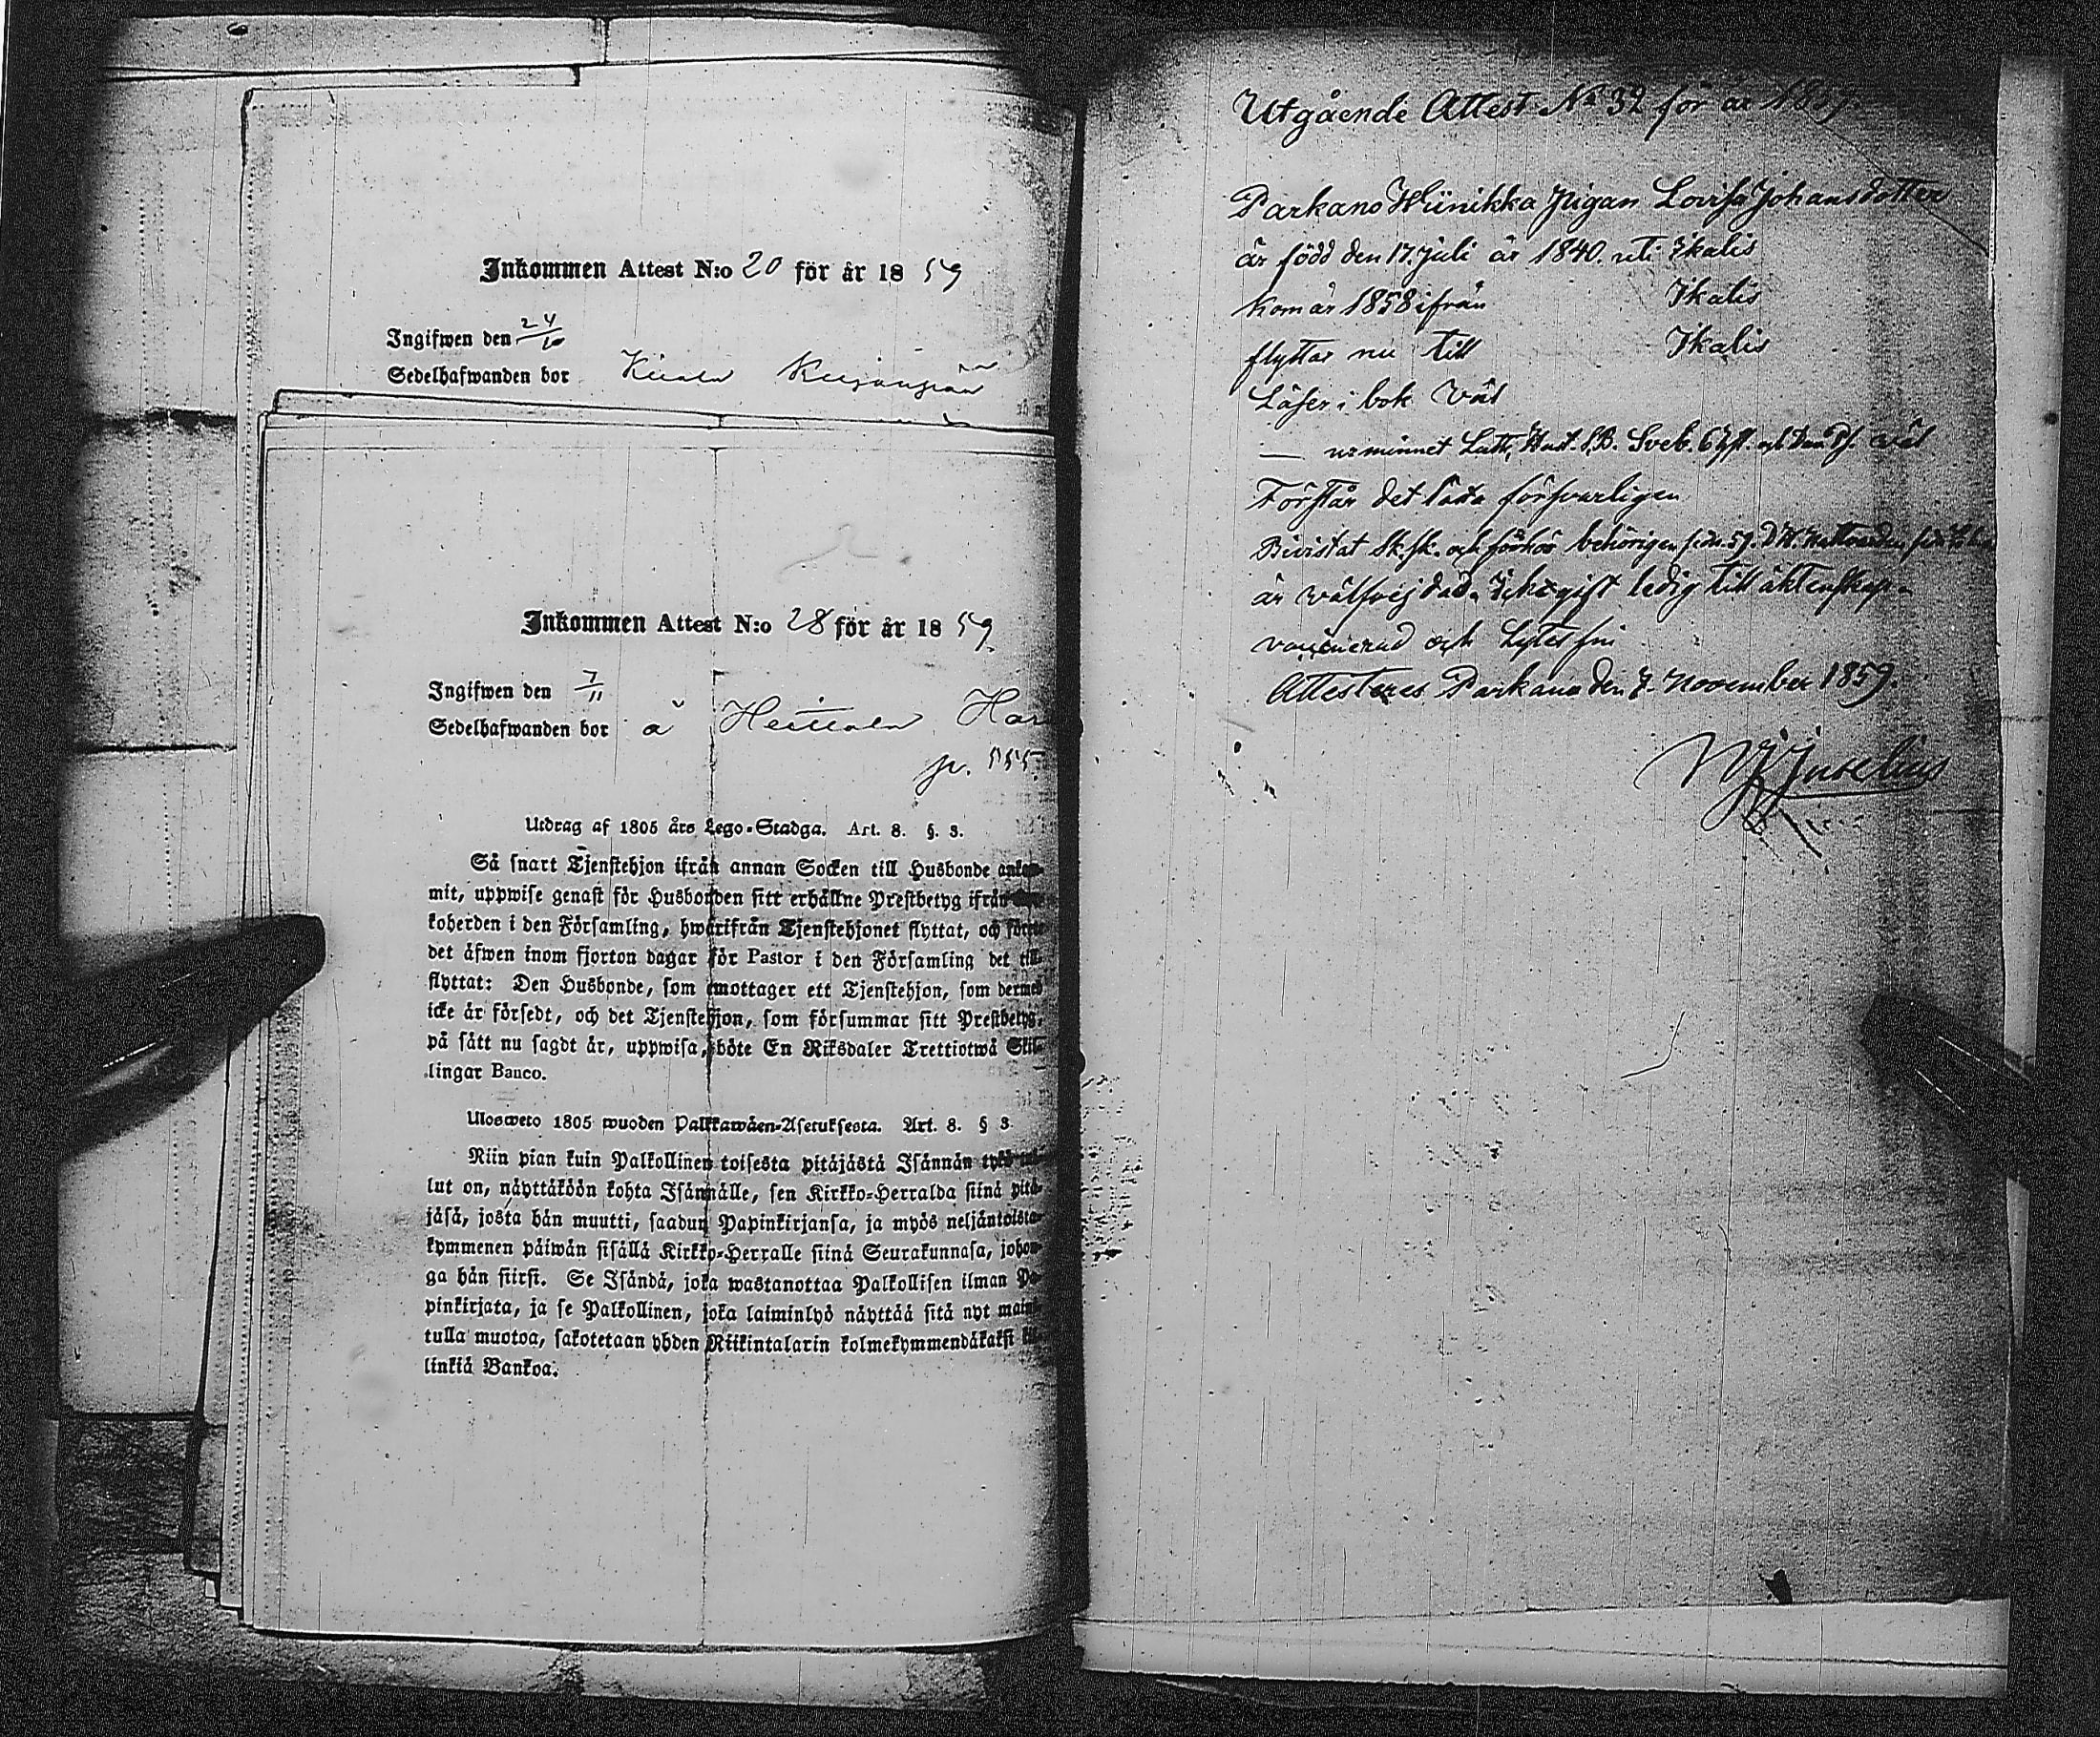 Inkommen Attest N:o 20 för år 1859
Ingifwen den 24/10
Sedelhafwanden bor
Inkommen Attest N:o 28 för år 1859.
Ingifwen den 7/11
Sedelhafwanden bor å Heittola
p. 555.
Utdrag af 1805 års Lego-Stadga. Art. 8. §. 3.
Så snart Tjenstehjon ifrån annan Socken till Husbonde ankom-
mit, uppwise genast för Husbonden sitt erhållne Prestbetyg ifrån
koherden i den Församling, hwarifrån Tjenstehjonet flyttat, och förete
det äfwen inom fjorton dagar för Pastor i den Församling det till-
flyttat: Den Husbonde, som emottager ett Tjenstehjon, som dermed
icke är försedt, och det Tjenstehjon, som försummar sitt Prestbetyg,
på sätt nu sagdt är, uppwisa, böte En Riksdaler Trettiotwå Skil-
lingar Banco.
Ulosweto 1805 wuoden Palkkawäen-Asetuksesta. Art. 8. § 3.
Niin pian kuin Palkollinen toisesta pitäjästä Isännän tykö tul-
lut on, näyttäköön kohta Isännälle, sen Kirkko-Herralda siinä pitä-
jäsä, josta hän muutti, saadun Papinkirjansa, ja myös neljäntoista-
kymmenen päiwän sisällä Kirkko-Herralle siinä Seurakunnasa, johon-
ga hän siirsi. Se Isändä, joka wastanottaa Palkollisen ilman Pa-
pinkirjata, ja se Palkollinen, joka laiminlyö näyttää sitä nyt maini-
tulla muotoa, sakotetaan yhden Riikintalarin kolmekymmendäkaksi kil-
linkiä Bankoa.
Utgående Attest No 32 för år 1859.
Parkano Hiinikka Pigan Lovisa Johansdotter
är född den 17. Juli år 1840. uti Ikalis
kom år 1858 ifrån Ikalis
flyttar nu till Ikalis
Läser i bok väl
— ur minnet Luth. Hust. S.B. Sveb. väl
Förstår det lästa försvarligen
Bivistat Sk.sk. och förhör behörigen
är wälfrejdad. Icke gift ledig till äktenskap.
vaccinerad och Lytesfri
Attesteras Parkano den 7. November 1859.
Juselius